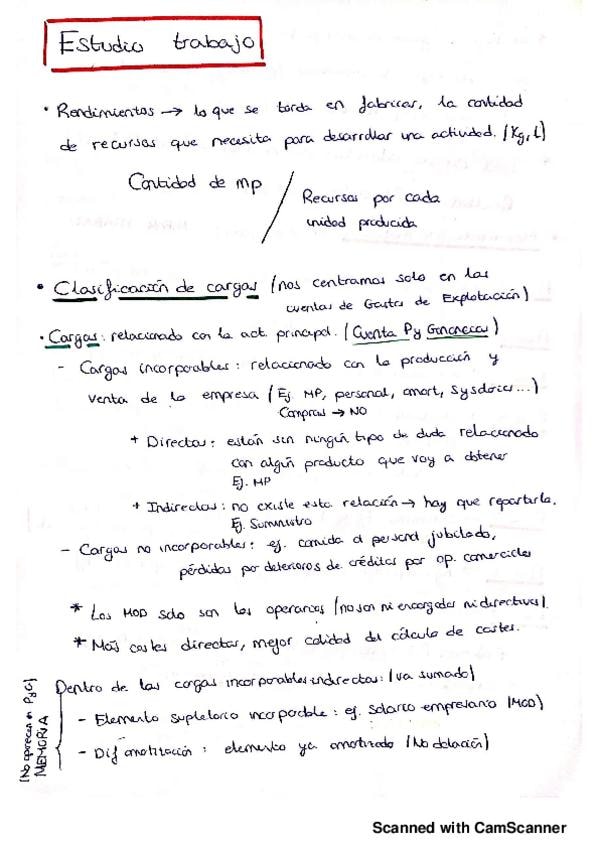 Estudio trabajo
• Rendimientos → lo que se tarda en fabricar, la cantidad
de recursos que necesita para desarrollar una actividad. (Kg, L)
Cantidad de mp / Recursos por cada
unidad producida
• Clasificación de cargas (nos centramos solo en las
cuentas de Gastos de Explotación)
• Cargas: relacionado con la act. principal. (Cuenta P y Ganancias)
- Cargas incorporables: relacionado con la producción y
venta de la empresa (Ej MP, personal, amort, sysdoies...)
Compras → NO
+ Directas: están sin ningún tipo de duda relacionado
con algún producto que voy a obtener
Ej. MP
+ Indirectas: no existe esta relación → hay que repartirla.
Ej. Suministro
- Cargas no incorporables: ej. comida al personal jubilado,
pérdidas por deterioros de créditos por op. comerciales
* Los MOD solo son los operarios (no son ni encargados ni directivos).
* Más costes directos, mejor calidad del cálculo de costes.
Dentro de las cargas incorporables indirectas: (va sumado)
- Elemento supletorio incorporable: ej. salario empresario (MOD)
- Dif amortización: elemento ya amortizado (No dotación)
(No aparecen en PyG)
MEMORIA
Scanned with CamScanner